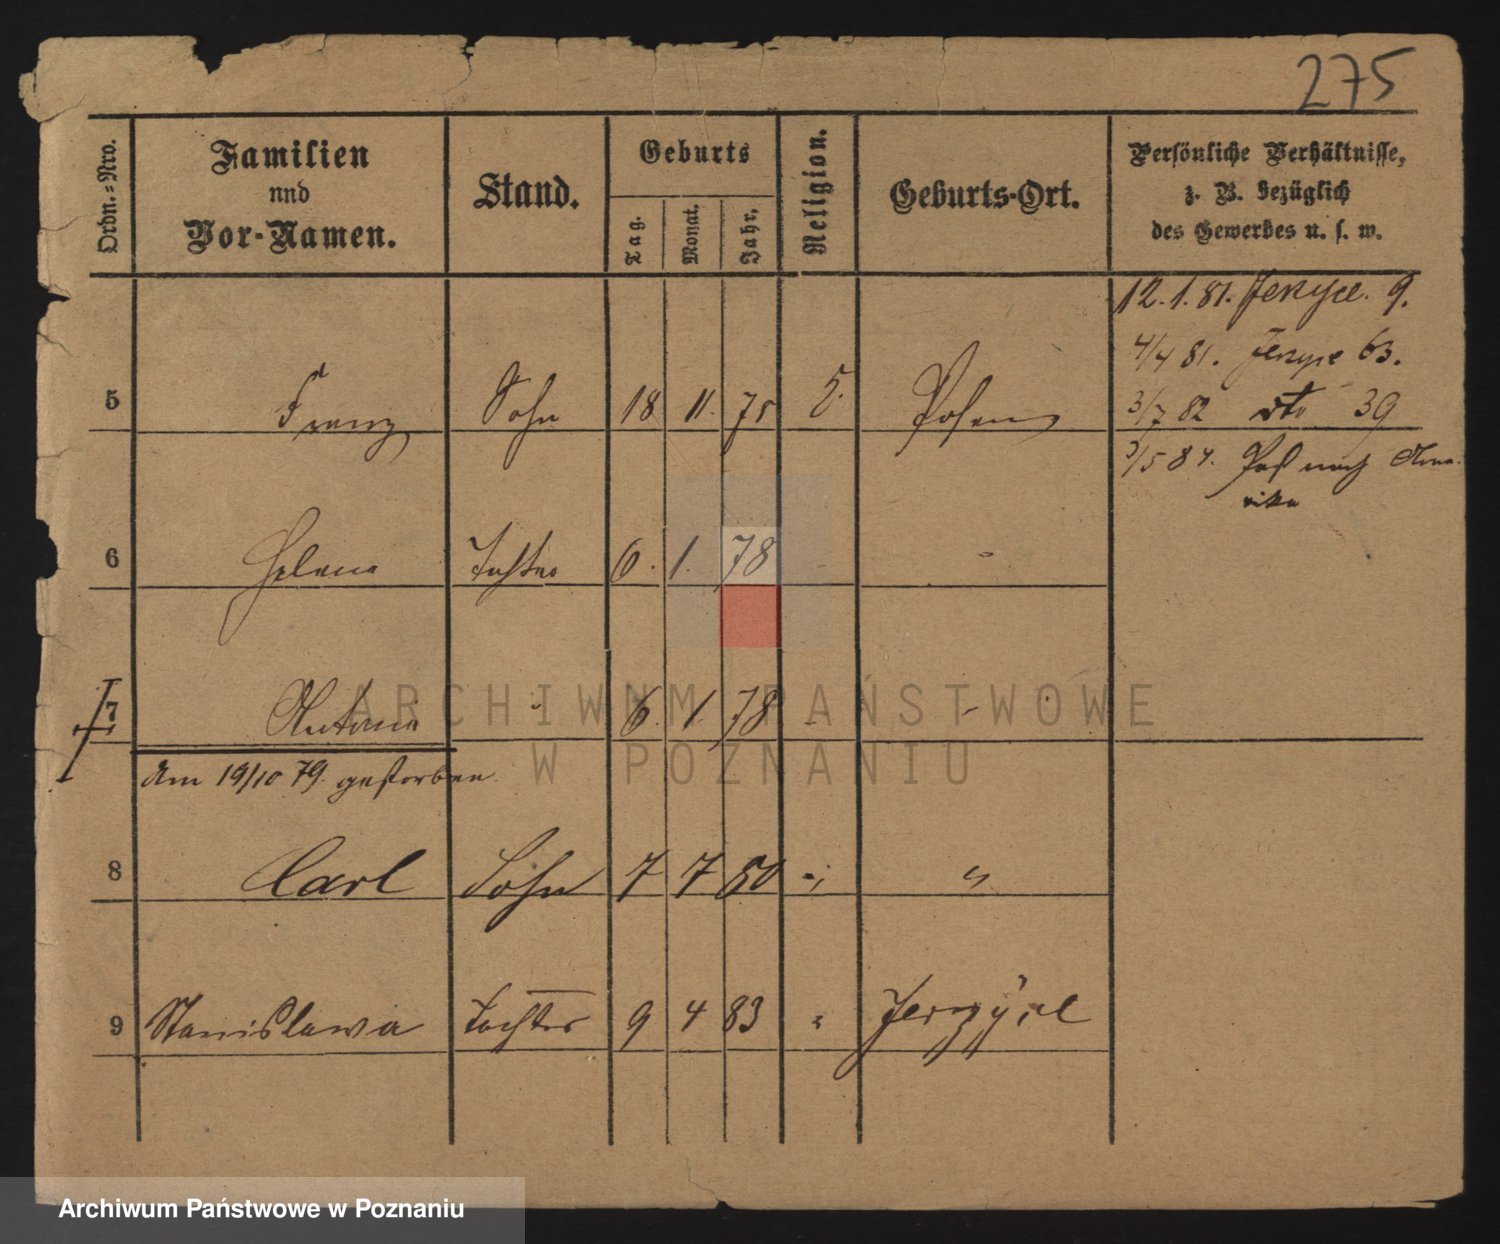 275
Ordn.=Nro.
Familien
und
Vor-Namen.
Stand.
Geburts
Tag.
Monat.
Jahr,
Religion.
Geburts-Ort.
Persönliche Verhältnisse,
z. B. bezüglich
des Gewerbes u. s. w.
12. 1. 81. Jerzyce. 9.
4/4 81. Jerzyce 63.
3/7 82 dto 39
5 Franz Sohn 18 11. 75 Posen
3/5 84. Paß nach Ame-
rika
6 Helene Tochter 6. 1. 78 -
7 Antonie " 6. 1. 78 - -
am 19/10 79. gestorben
8 Carl Sohn 7 7 80 " "
9 Stanislawa Tochter 9 4 83 "
ARCHIWUM PAŃSTWOWE
W POZNANIU
Archiwum Państwowe w Poznaniu